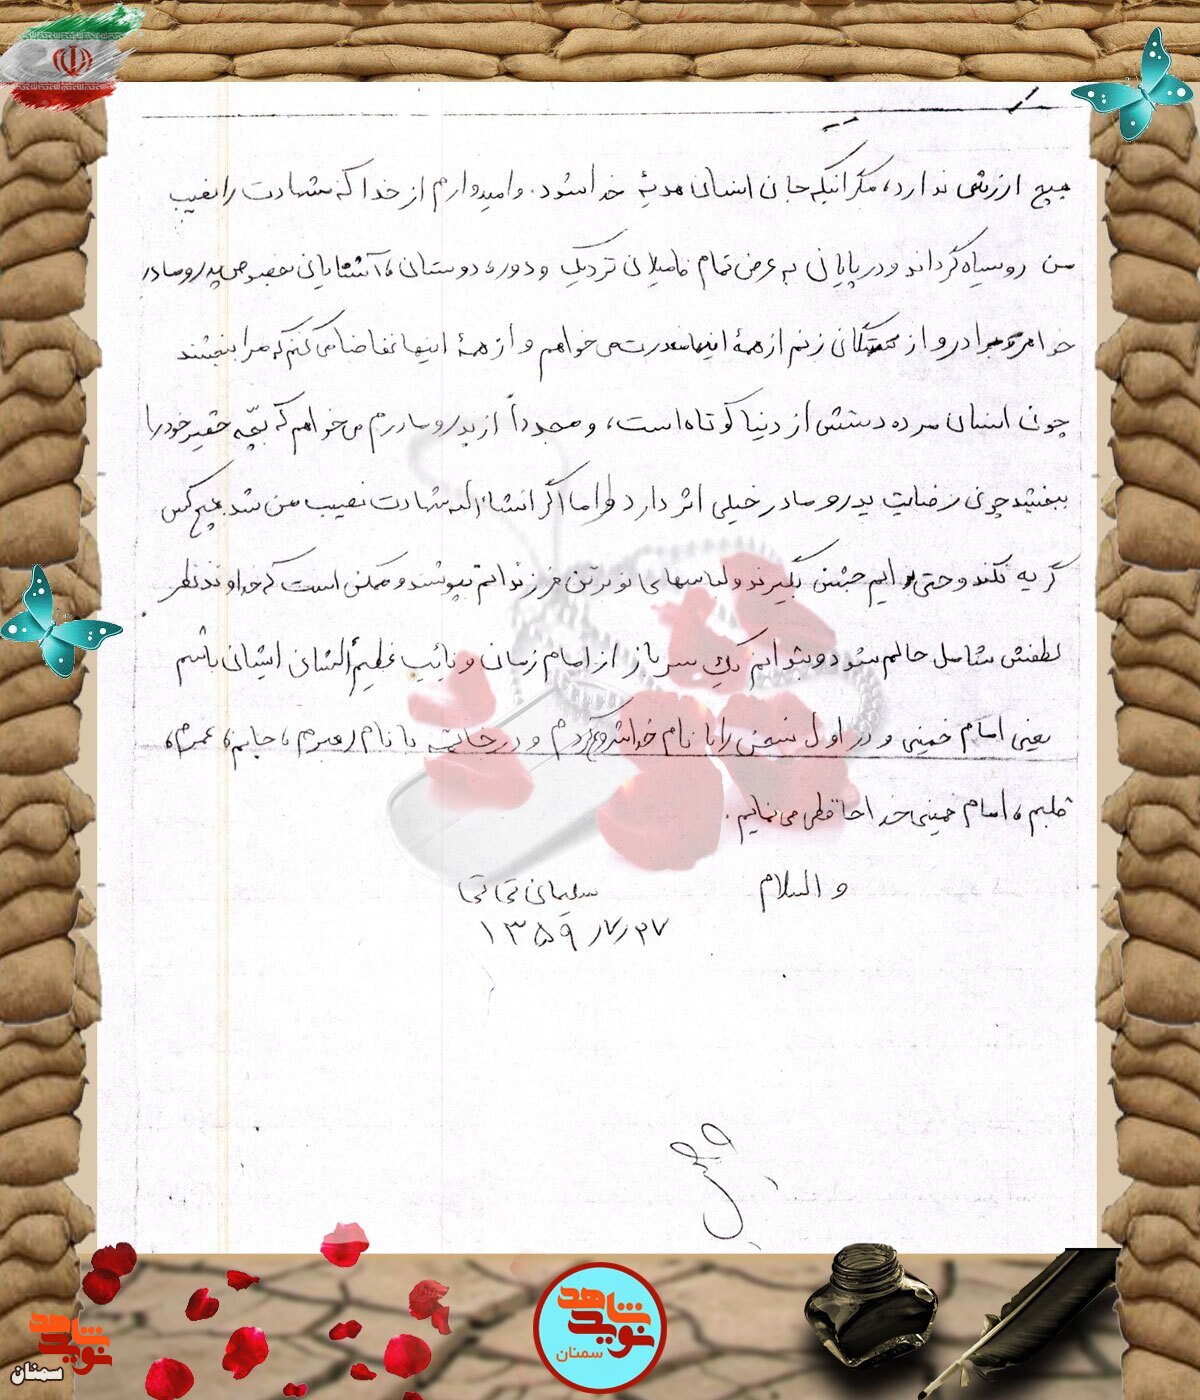 هیچ ارزشی ندارد، مگر اینکه جان انسان هدیهٔ خدا شود. و امیدوارم از خدا که شهادت را نصیب
من روسیاه گرداند و در پایان به عرض تمام فامیلان نزدیک و دوره دوستان، آشنایان بخصوص پدر و مادر
خواهر و برادر و از بستگان زنم از همهٔ اینها معذرت می خواهم و از همهٔ اینها تقاضا می کنم که مرا ببخشند
چون انسان مرده دستش از دنیا کوتاه است، و مجدداً از پدر و مادرم می خواهم که بچّه حقیر خود را
ببخشید چون رضایت پدر و مادر خیلی اثر دارد و اما اگر انشاءالله شهادت نصیب من شد هیچ کس
گریه نکند و حتی برایم جشن بگیرند و لباسهای نو برتن فرزندانم بپوشند و ممکن است که خداوند نظر
لطفش شامل حالم شود و بتوانم یک سرباز از امام زمان و نایب عظیم الشان ایشان باشم
یعنی امام خمینی و در اول سخن را با نام خدا شروع کردم و در خاتمه با نام رهبرم، جانم، عمرم،
قلبم، امام خمینی خداحافظی می نمایم.
و السلام
سلیمانی
۱۳۵۹
شاهد
نوید
سمنان
شاهد
نوید
سمنان